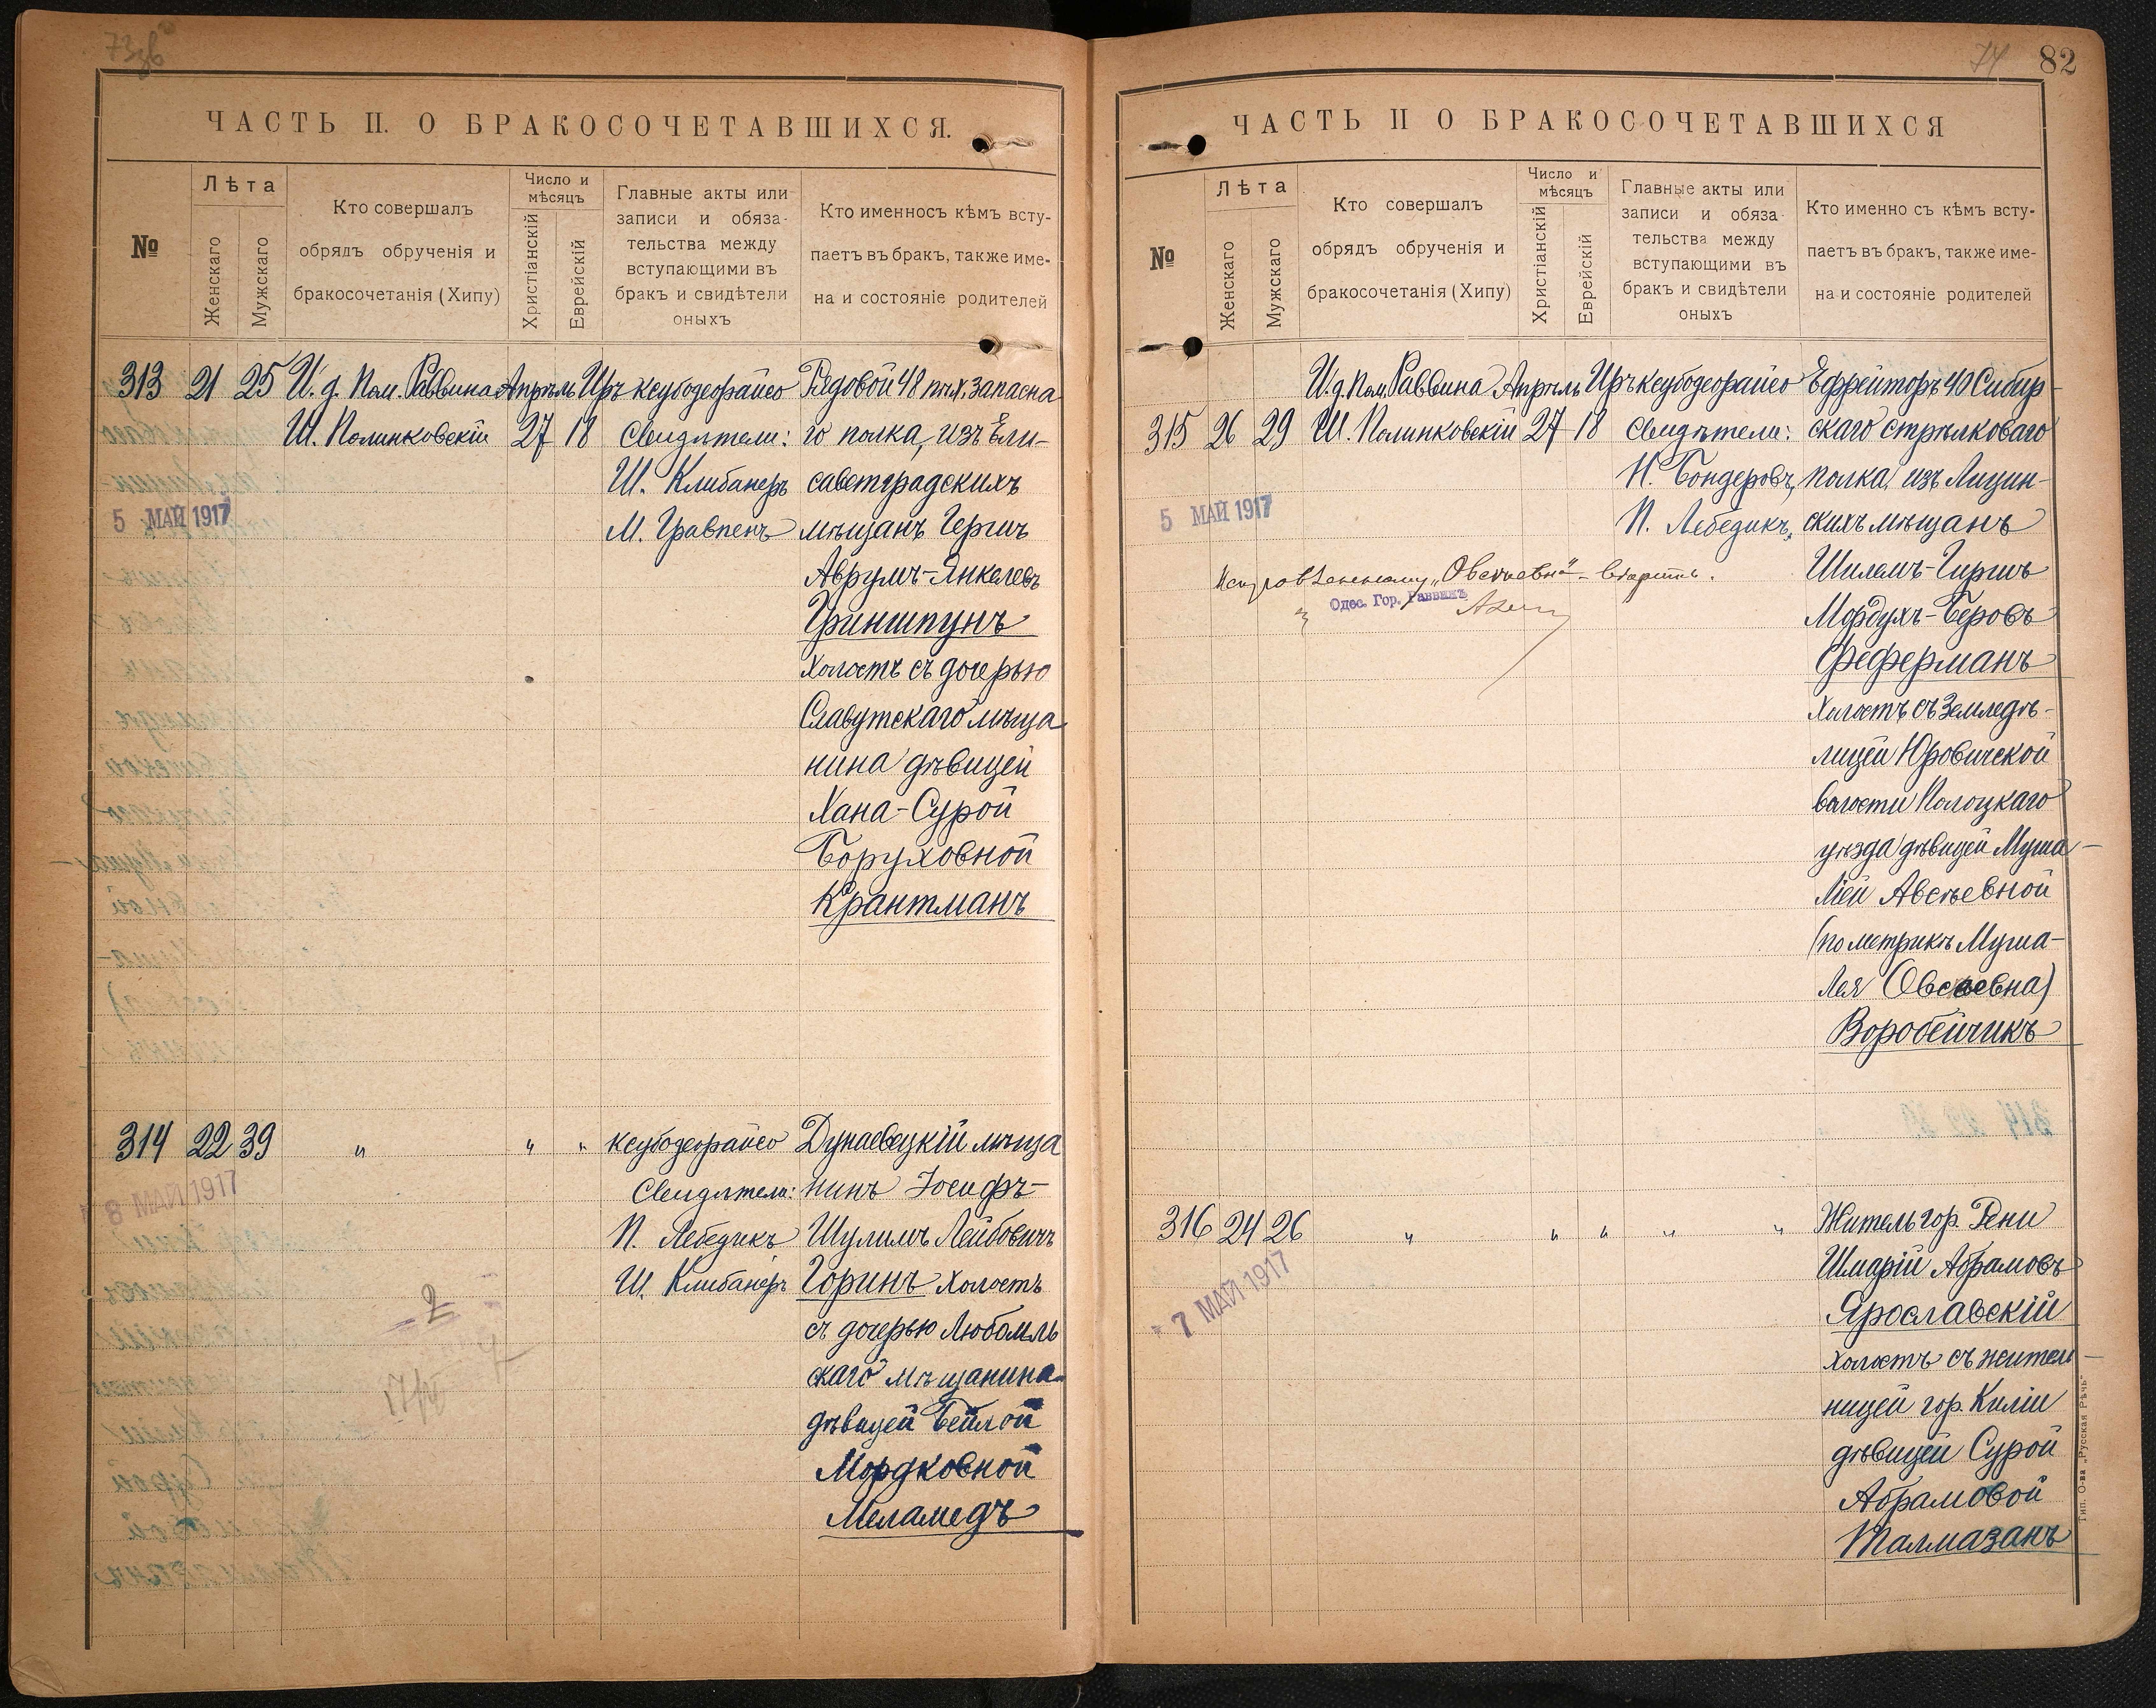 ЧАСТЬ II. О БРАКОСОЧЕТАВШИХСЯ.
№
Лѣта
Женскаго
Мужскаго
Кто совершалъ
обрядъ обрученія и
бракосочетанія (Хипу)
Число и
мѣсяцъ
Христіанскій
Еврейскій
Главные акты или
записи и обяза-
тельства между
вступающими въ
бракъ и свидѣтели
оныхъ
Кто именносъ кѣмъ всту-
паетъ въ бракъ, также име-
на и состояніе родителей
313 21 25 И. д. Пом. Раввина Апрѣль Иръ ксубодеорайсо Рядовой 48 пѣх. запасна
Ш. Полинковскій 27 18 Свидѣтели: го полка, изъ Ели-
Ш. Клибанеръ саветградскихъ
5 МАЙ 1917
М. Гравпенъ мѣщанъ Гершъ
Аврумъ-Янкелевъ
Гриншпунъ
холостъ съ дочерью
Славутскаго мѣща
нина дѣвицей
Хана-Сурой
Боруховной
Крантманъ
314 22 39 " " " ксубодеорайсо Дунаевецкій мѣща
8 МАЙ 1917
Свидѣтели: нинъ Іосифъ-
П. Лебедикъ Шулимъ Лейбовичъ
Ш. Клибанеръ Горинъ холостъ
2
съ дочерью Любомль
скаго мѣщанина
дѣвицей Бейлой
Мордковной
Меламедъ
74 82
ЧАСТЬ II О БРАКОСОЧЕТАВШИХСЯ
№
Лѣта
Женскаго
Мужскаго
Кто совершалъ
обрядъ обрученія и
бракосочетанія (Хипу)
Число и
мѣсяцъ
Христіанскій
Еврейскій
Главные акты или
записи и обяза-
тельства между
вступающими въ
бракъ и свидѣтели
оныхъ
Кто именно съ кѣмъ всту-
паетъ въ бракъ, также име-
на и состояніе родителей
И. д. Пом. Раввина Апрѣль Иръ ксубодеорайсо Ефрейторъ 40 Сибир-
315 26 29 Ш. Полинковскій 27 18 Свидѣтели: скаго стрѣлковаго
Н. Бондеровъ, полка, изъ Люцин-
5 МАЙ 1917
П. Лебедикъ, скихъ мѣщанъ
Исправленному „Овсѣевна" - вѣрить.
Одес. Гор. Раввинъ
Шилемъ-Гиршъ
Мордухъ-Беровъ
Феферманъ
холостъ съ Земледѣ-
лицей Юровичской
волости Полоцкаго
уѣзда дѣвицей Муша-
Леи Авсѣевной
(по метрикѣ Муша-
Лея Овсѣевна)
Воробейчикъ
316 24 26 " " " " " Житель гор. Рени
7 МАЙ 1917
Шмарій Абрамовъ
Ярославскій
холостъ съ житель-
ницей гор. Киліи
дѣвицей Сурой
Абрамовой
Талмазанъ
Тип. О-ва „Русская Рѣчь"